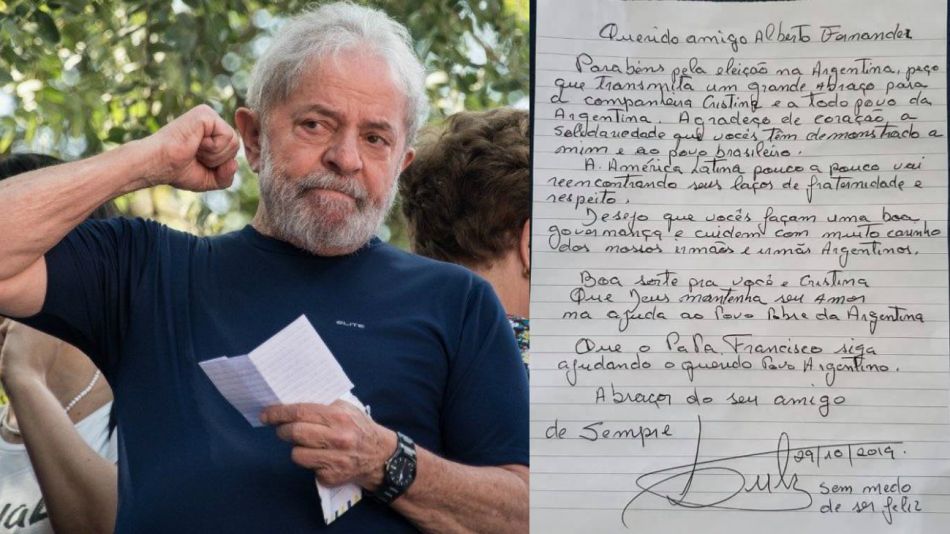 ELITE
Querido amigo Alberto Fernandez
Parabéns pela eleição na Argentina, peço
que transmita um grande Abraço para
a companheira Cristina e a todo povo da
Argentina. Agradeço de coração, a
solidariedade que vocês têm demonstrado a
mim e ao povo brasileiro.
A América Latina pouco a pouco vai
reencontrando seus laços de fraternidade e
respeito.
Desejo que vocês façam uma boa
governança e cuidem com muito carinho
dos nossos irmãos e irmãs Argentinos.
Boa sorte pra você e Cristina
Que Deus mantenha seu Amor
na ajuda ao Povo Pobre da Argentina
Que o Papa Francisco siga
ajudando o querido Povo Argentino.
Abraços do seu amigo
de Sempre
29/10/2019
Lula
sem medo
de ser feliz